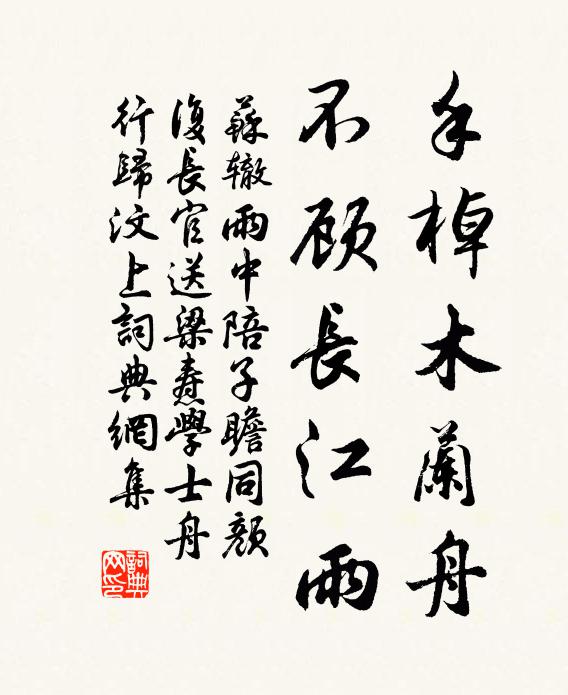 手棹木蘭舟
不顾長江雨
蘇辙雨中陪子瞻同颜
復長官送梁焘學士舟
行歸汶上詞典網集
詞典网印